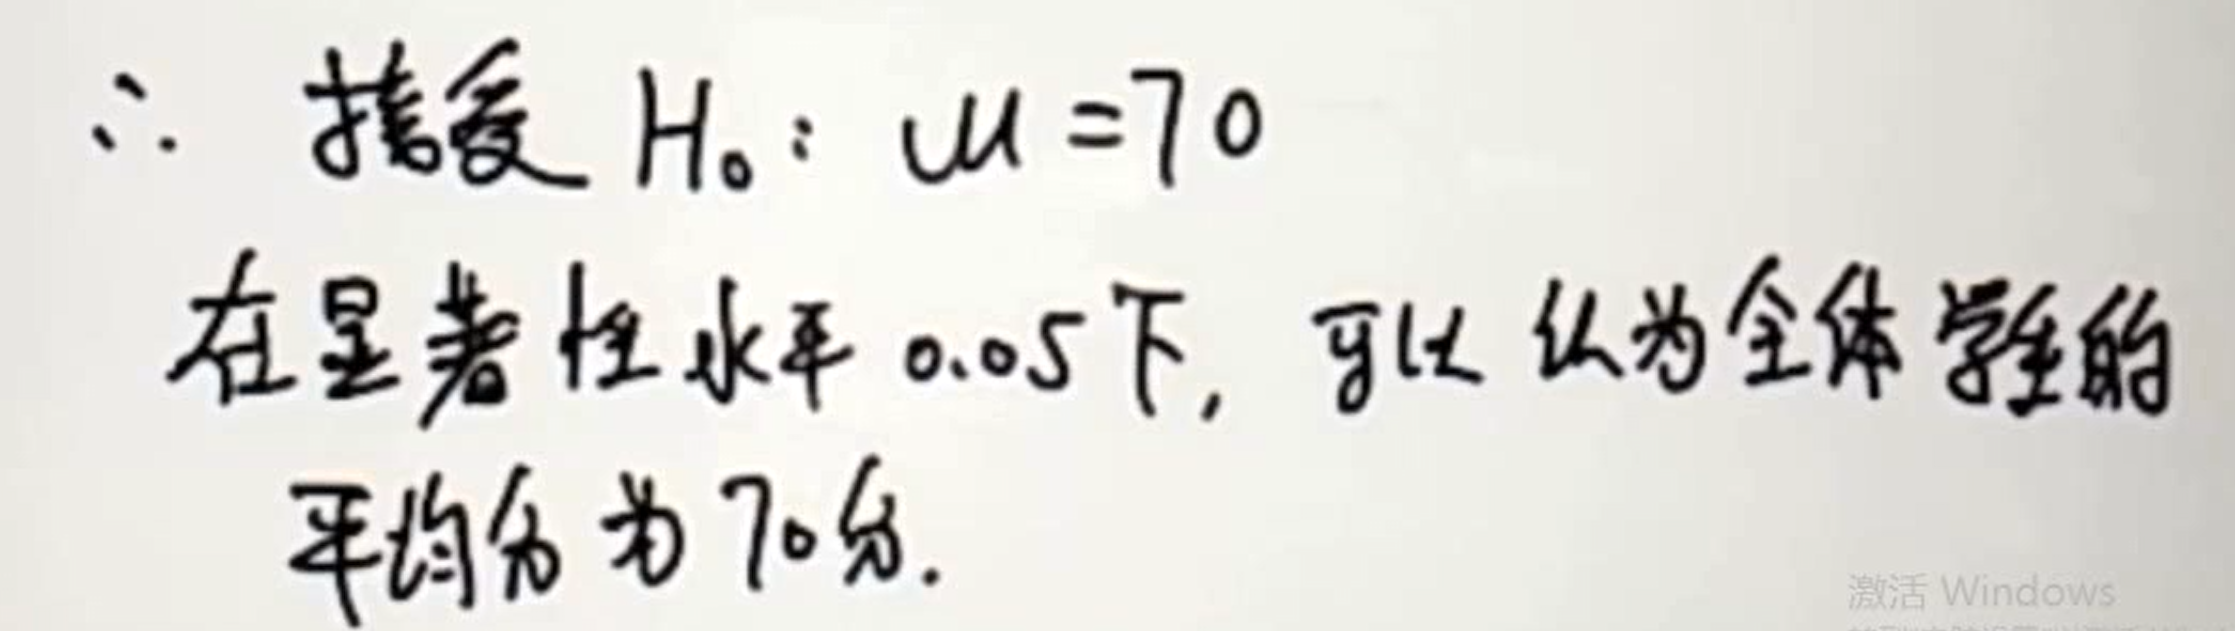 ∴ 接受 H₀: μ=70
在显著性水平 0.05下, 可以认为全体学生的
平均分为70分.
激活 Windows